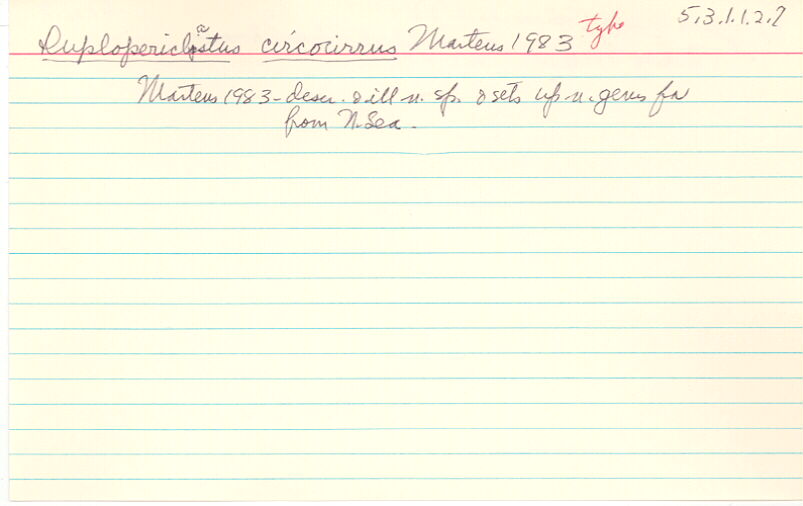 Duplopericlistus circocirrus Martens 1983 type 5.3.1.1.2.7
a
Martens 1983 - descr. & ill n. sp. & sets up n. genus for
from N. Sea.